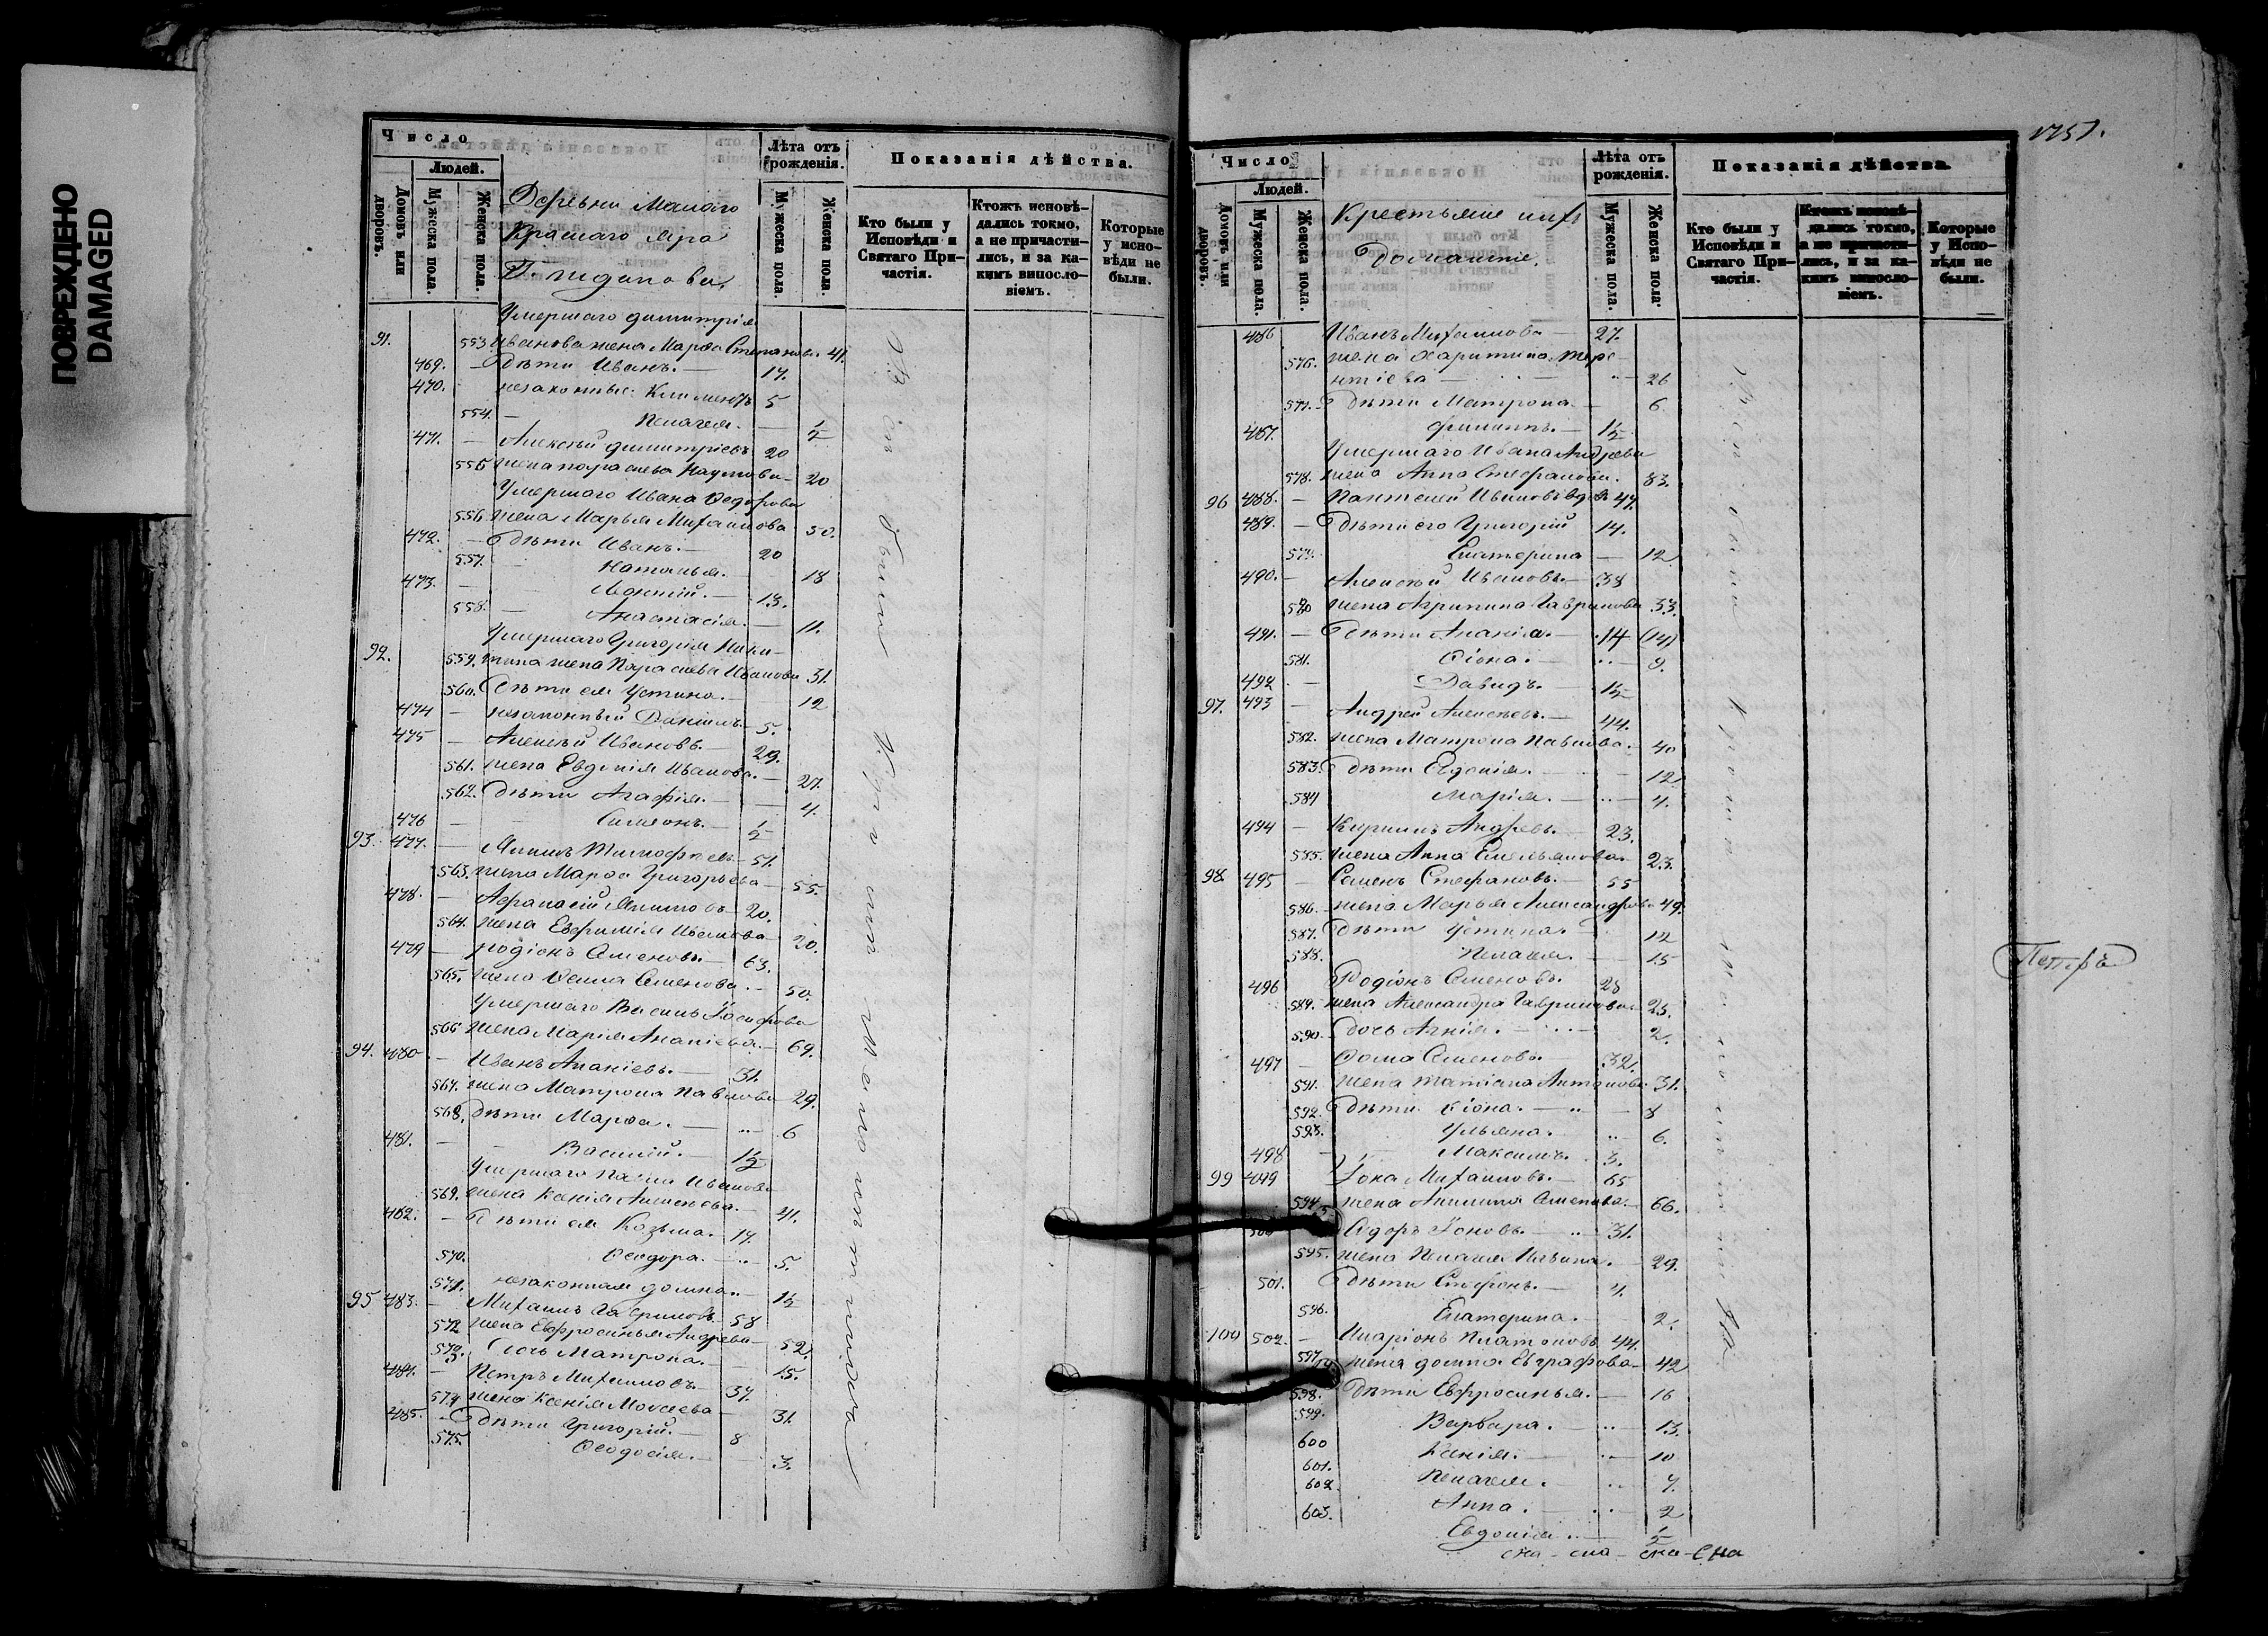 ПОВРЕЖДЕНО
DAMAGED
Число
Людей.
Домовъ или дворовъ.
Мужеска пола.
Женска пола.
Деревни Малаго
Краснаго Яра
Лѣта отъ рожденія.
Мужеска пола.
Женска пола.
Показанія дѣйства.
Кто были у Исповѣди и Святаго Причастія.
Ктожъ исповѣдались токмо, а не причастились, и за какимъ винословіемъ.
Которые у исповѣди не были.
Умершаго Димитрія
91. 553 Иванова жена Марѳа Степанова 41.
469. – Дѣти Иванъ. – 17.
470. незаконные: Климентъ 5
554. – Пелагея. – 1/2
471. – Алексѣй Димитріевъ 20
555 жена Параскева Наумова – 20
Умершаго Ивана Ѳедорова
556. жена Марья Михаилова 50.
472. – Дѣти Иванъ. – 20
557. Наталья. – 18
473. – Леонтій. – 13.
558. – Анастасія. – 11.
Умершаго Григорія Ники-
92. 559. тина жена Параскева Иванова 31.
560. Дѣти ея Устина. – 12
474 – незаконный Даніилъ 5.
475 – Алексѣй Ивановъ. – 29.
561. жена Евдокія Иванова. – 27.
562. Дѣти Агафія. – 4.
476 – Симеонъ. – 1/2
93. 477. – Якимъ Тимофеевъ – 51.
563. жена Марѳа Григорьева – 55.
478. – Аѳанасій Якимовъ – 20.
564. жена Евфимія Иванова – 20.
479 – Родіонъ Семеновъ. – 63.
565. жена Ѳекла Семенова. – 50.
Умершаго Василья Іосифова
566 жена Марія Ананіева. – 69.
94. 480 – Иванъ Ананіевъ. – 31.
567. жена Матрона Павлова – 29.
568. Дѣти Марѳа. – 6
481. – Василій. – 1 1/2
Умершаго Павла Иванова
569. жена Ксенія Алексѣева. – 41.
482. – Дѣти ея Козьма. 17.
570. Ѳеодора. – 5.
571. незаконная Домна. – 1 1/2
95 483. – Михаилъ Гавриловъ – 58
572 жена Евфросинья Андреева – 52.
573. Дочь Матрона. – 15.
484. – Петръ Михаиловъ – 37.
574 жена Ксенія Моисеева – 31.
485. – Дѣти Григорій. – 8
575. Ѳеодосія. – 3.
Всѣ были
Число
Людей.
Домовъ или дворовъ.
Мужеска пола.
Женска пола.
Крестьяне ихъ
Домашніе.
Лѣта отъ рожденія.
Мужеска пола.
Женска пола.
Показанія дѣйства.
Кто были у Исповѣди и Святаго Причастія.
Ктожъ исповѣдались токмо, а не причастились, и за какимъ винословіемъ.
Которые у Исповѣди не были.
486 Иванъ Михаиловъ – 27.
576. жена Харитина Тере-
нтіева – 26
577. – Дѣти Матрона. – 6
487. Филиппъ. – 1 1/2
Умершаго Ивана Андреева
578. жена Анна Стефанова. 83.
96 488. – Пантелей Ивановъ вдовъ 47.
489. – Дѣти его Григорій 14.
579. Екатерина – 12
490. – Алексѣй Ивановъ. – 38
580 жена Агрипина Гаврилова 33.
491. – Дѣти Ананія. – 14 (14)
581. Ѳіона. – 9.
492 – Давидъ. – 1 1/2
97. 493 – Андрей Алексѣевъ. – 44.
582. жена Матрона Павлова. 40
583. Дѣти Евдокія. – 12
584 Марія. – 4.
494 – Кирилъ Андреевъ. – 23.
585. жена Анна Емельянова. 23.
98. 495 – Семенъ Стефановъ. – 55
586. – жена Марья Александрова 49.
587. Дѣти Устина. 12
588. Пелагея. – 15
496 Родіонъ Семеновъ. 28
589. жена Александра Гаврилова. 25.
590. Дочь Агнія. – 2.
497 – Ѳома Семеновъ – 32.
591. жена Татіана Антонова. 31.
592. Дѣти Ѳіона. – 8
593. Ульяна. – 6.
498 – Максимъ. 3.
99 499 Іона Михаиловъ. – 65
594. жена Акилина Семенова. – 66.
500 Ѳедоръ Іоновъ. – 31.
595. жена Пелагея Ильина. – 29.
501. Дѣти Стефанъ. – 4.
596. Екатерина. – 2.
100 502. – Иларіонъ Платоновъ 44.
597 жена Домна Евграфова – 42
598. Дѣти Евфросинья. – 16
599. Варвара. – 13.
600 Ксенія. – 10
601. Пелагея. – 7.
602 Анна. – 2
603. Евдокія. – 1/2
Всѣ были
Петръ